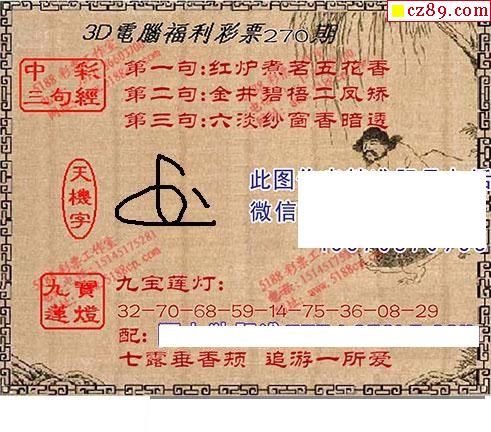 cz89.com
3D電腦福利彩票270期
中彩
三句經
第一句:红炉煮茗五花香
第二句:金井碧梧二凤矫
第三句:六淡纱窗香暗透
天機字
此图
微信
九寶蓮燈
九宝莲灯:
32-70-68-59-14-75-36-08-29
配:
七露垂香颊 追游一所爱
5188 彩票工作室
15145175281
www.5188cn.com